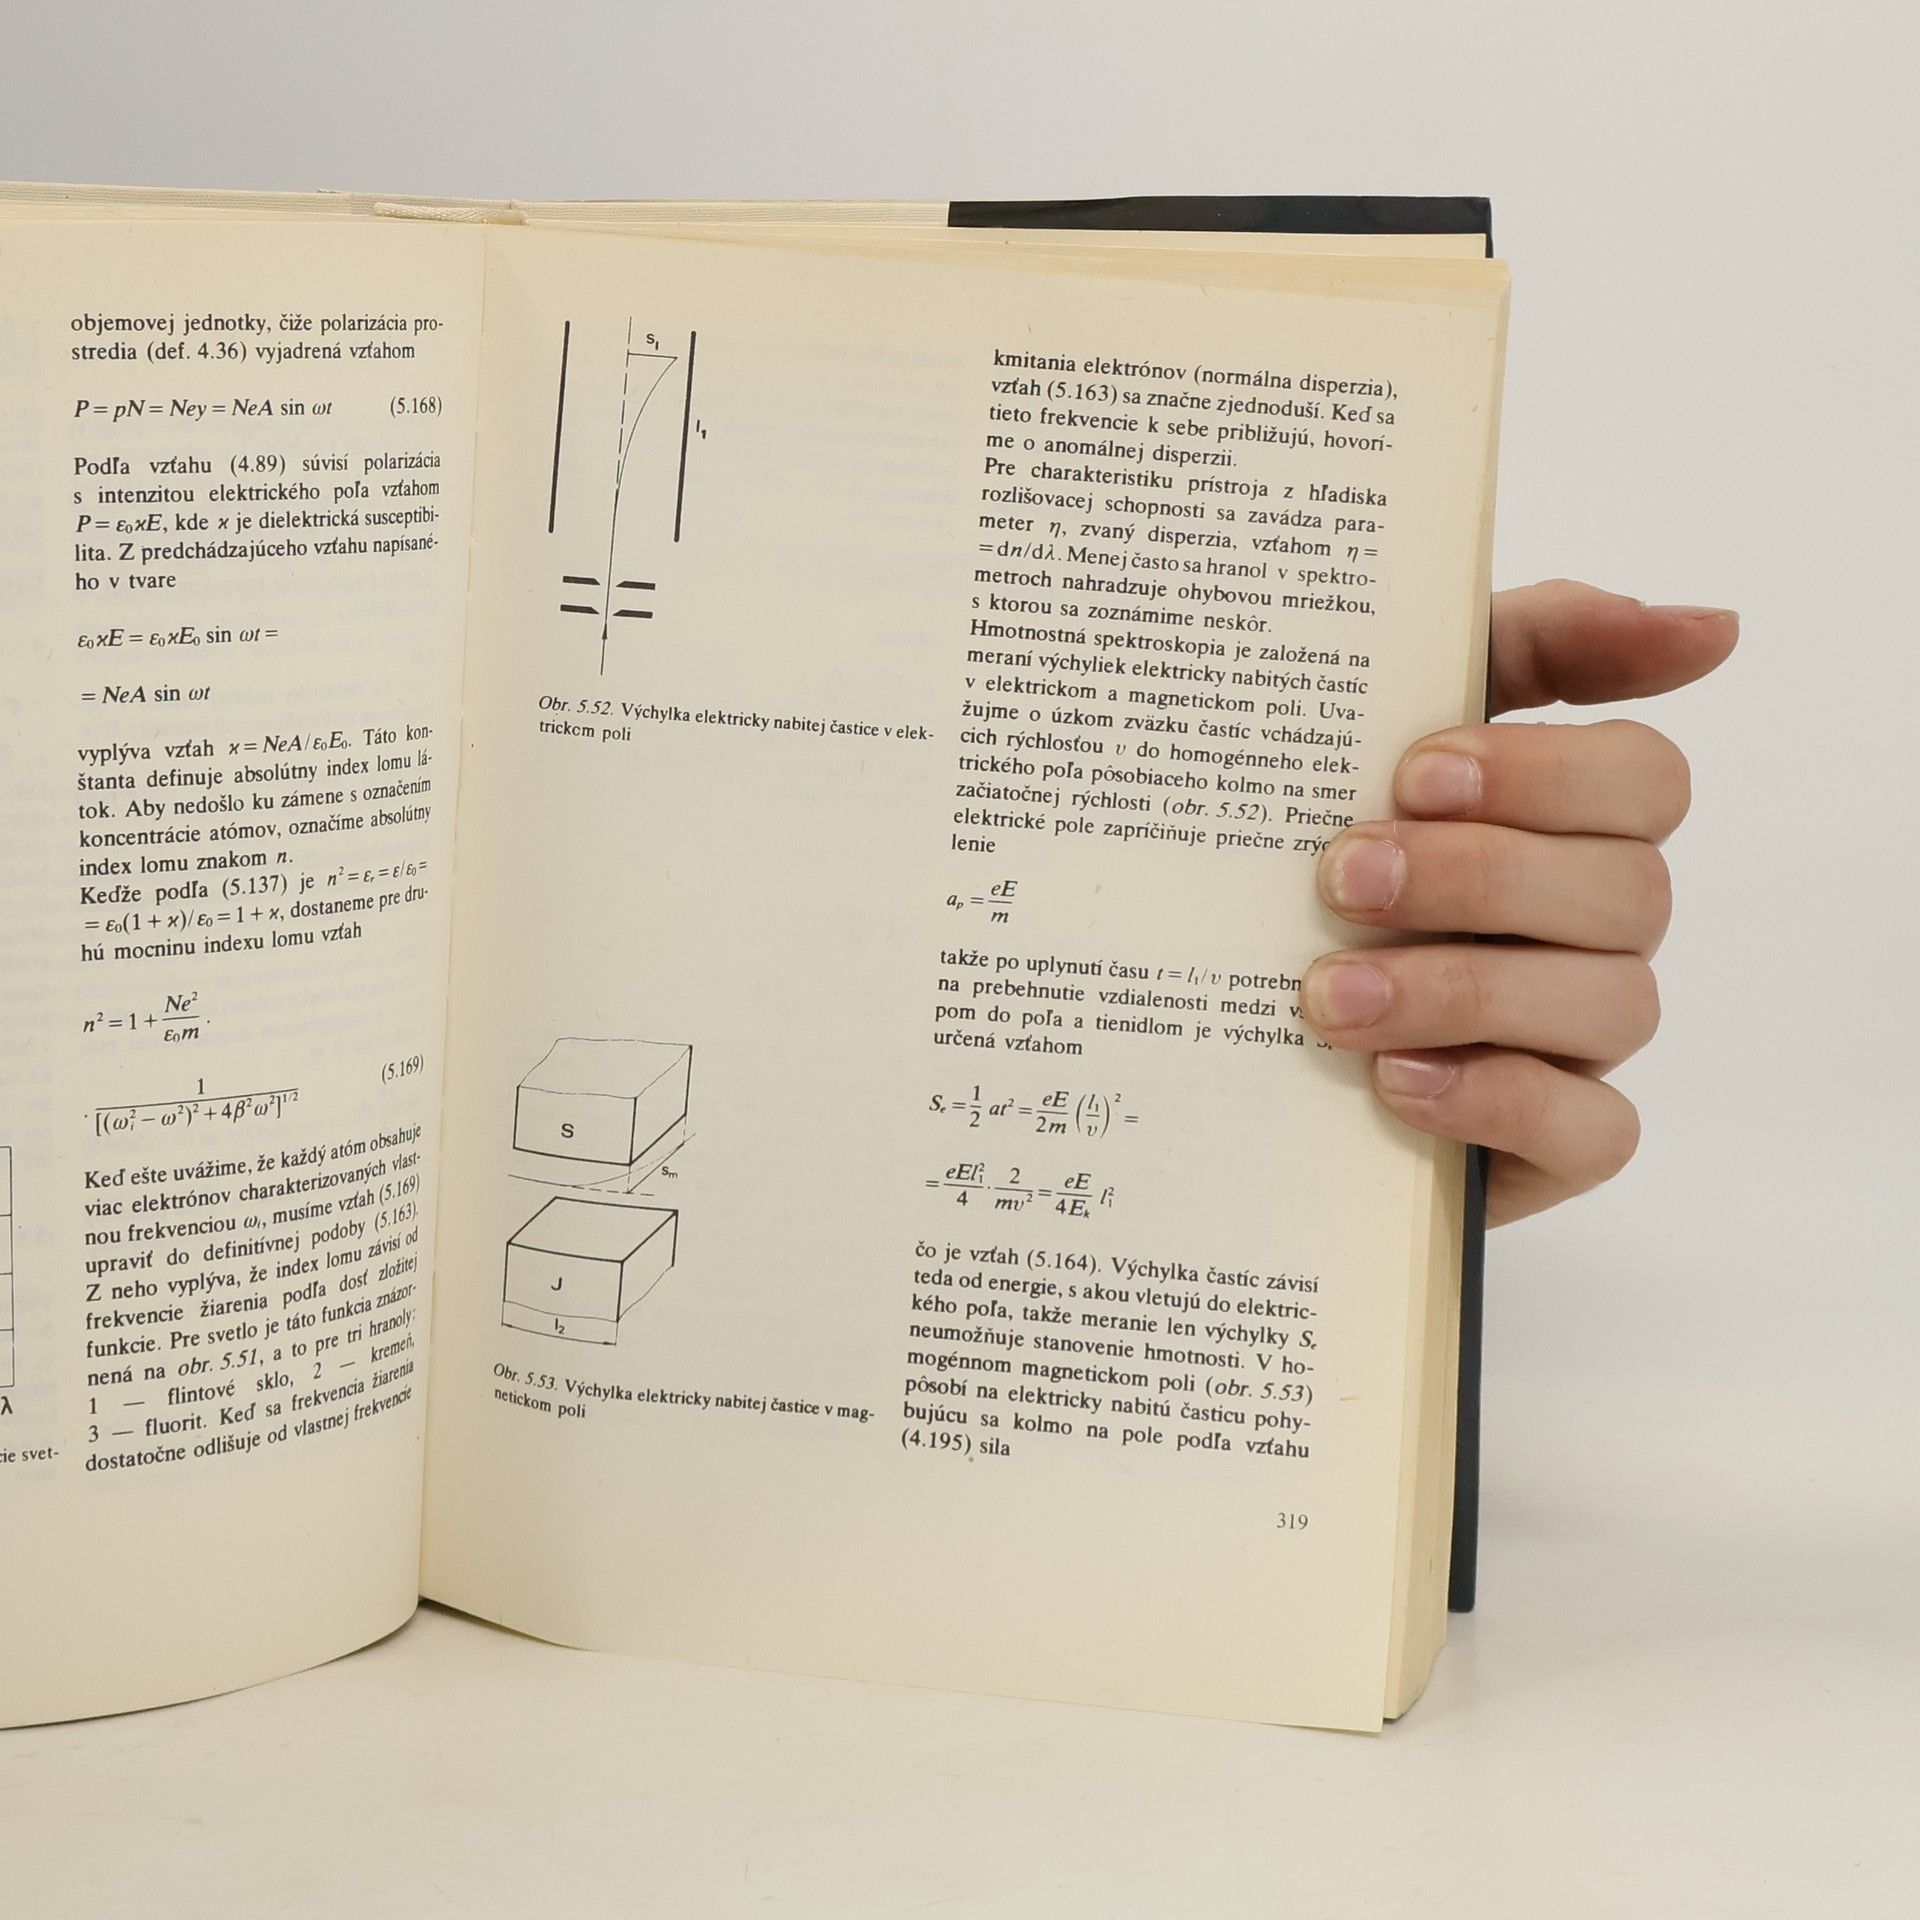 objemovej jednotky, čiže polarizácia pro-
stredia (def. 4.36) vyjadrená vzťahom
P = pN = Ney = NeA sin ωt (5.168)
Podľa vzťahu (4.89) súvisí polarizácia
s intenzitou elektrického poľa vzťahom
P = ε₀ϰE, kde ϰ je dielektrická susceptibi-
lita. Z predchádzajúceho vzťahu napísané-
ho v tvare
ε₀ϰE = ε₀ϰE₀ sin ωt =
= NeA sin ωt
vyplýva vzťah ϰ = NeA/ε₀E₀. Táto kon-
štanta definuje absolútny index lomu lá-
tok. Aby nedošlo ku zámene s označením
koncentrácie atómov, označíme absolútny
index lomu znakom n.
Keďže podľa (5.137) je n² = εᵣ = ε/ε₀ =
= ε₀(1 + ϰ)/ε₀ = 1 + ϰ, dostaneme pre dru-
hú mocninu indexu lomu vzťah
n² = 1 + Ne²/ε₀m ·
· 1/[(ωᵢ² − ω²)² + 4β²ω²]^1/2 (5.169)
Keď ešte uvážime, že každý atóm obsahuje
viac elektrónov charakterizovaných vlast-
nou frekvenciou ωᵢ, musíme vzťah (5.169)
upraviť do definitívnej podoby (5.163).
Z neho vyplýva, že index lomu závisí od
frekvencie žiarenia podľa dosť zložitej
funkcie. Pre svetlo je táto funkcia znázor-
nená na obr. 5.51, a to pre tri hranoly:
1 — flintové sklo, 2 — kremeň,
3 — fluorit. Keď sa frekvencia žiarenia
dostatočne odlišuje od vlastnej frekvencie
λ
cie svet-
s₁
l₁
Obr. 5.52. Výchylka elektricky nabitej častice v elek-
trickom poli
S
sₘ
J
l₂
Obr. 5.53. Výchylka elektricky nabitej častice v mag-
netickom poli
kmitania elektrónov (normálna disperzia),
vzťah (5.163) sa značne zjednoduší. Keď sa
tieto frekvencie k sebe približujú, hovorí-
me o anomálnej disperzii.
Pre charakteristiku prístroja z hľadiska
rozlišovacej schopnosti sa zavádza para-
meter η, zvaný disperzia, vzťahom η =
= dn/dλ. Menej často sa hranol v spektro-
metroch nahradzuje ohybovou mriežkou,
s ktorou sa zoznámime neskôr.
Hmotnostná spektroskopia je založená na
meraní výchyliek elektricky nabitých častíc
v elektrickom a magnetickom poli. Uva-
žujme o úzkom zväzku častíc vchádzajú-
cich rýchlosťou v do homogénneho elek-
trického poľa pôsobiaceho kolmo na smer
začiatočnej rýchlosti (obr. 5.52). Priečne
elektrické pole zapríčiňuje priečne zrýc
lenie
aₚ = eE/m
takže po uplynutí času t = l₁/v potrebn
na prebehnutie vzdialenosti medzi vs
pom do poľa a tienidlom je výchylka
určená vzťahom
Sₑ = 1/2 at² = eE/2m (l₁/v)² =
= eEl₁²/4 · 2/mv² = eE/4Eₖ l₁²
čo je vzťah (5.164). Výchylka častíc závisí
teda od energie, s akou vletujú do elektric-
kého poľa, takže meranie len výchylky Sₑ
neumožňuje stanovenie hmotnosti. V ho-
mogénnom magnetickom poli (obr. 5.53)
pôsobí na elektricky nabitú časticu pohy-
bujúcu sa kolmo na pole podľa vzťahu
(4.195) sila
319